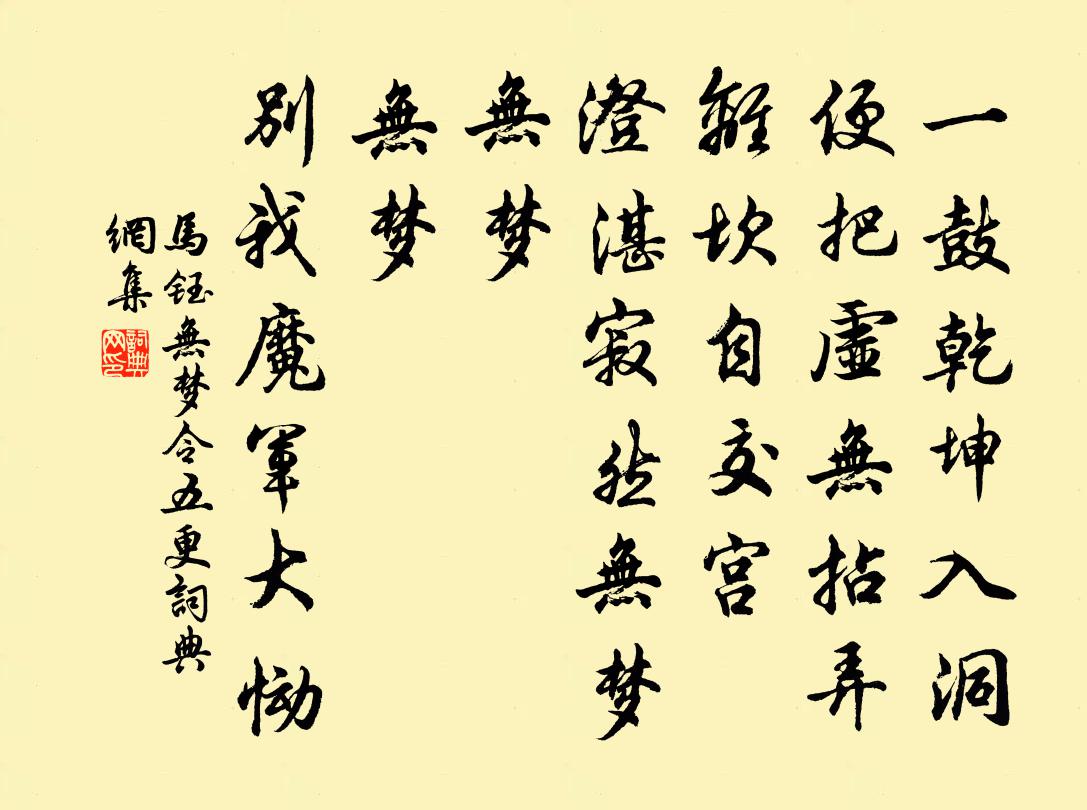 一鼓乾坤入洞
便把虛無拈弄
離坎自交宮
澄湛寂然無梦
無梦
無梦
別我魔軍大恸
馬鈺無梦令五更詞典
網集
詞典网印